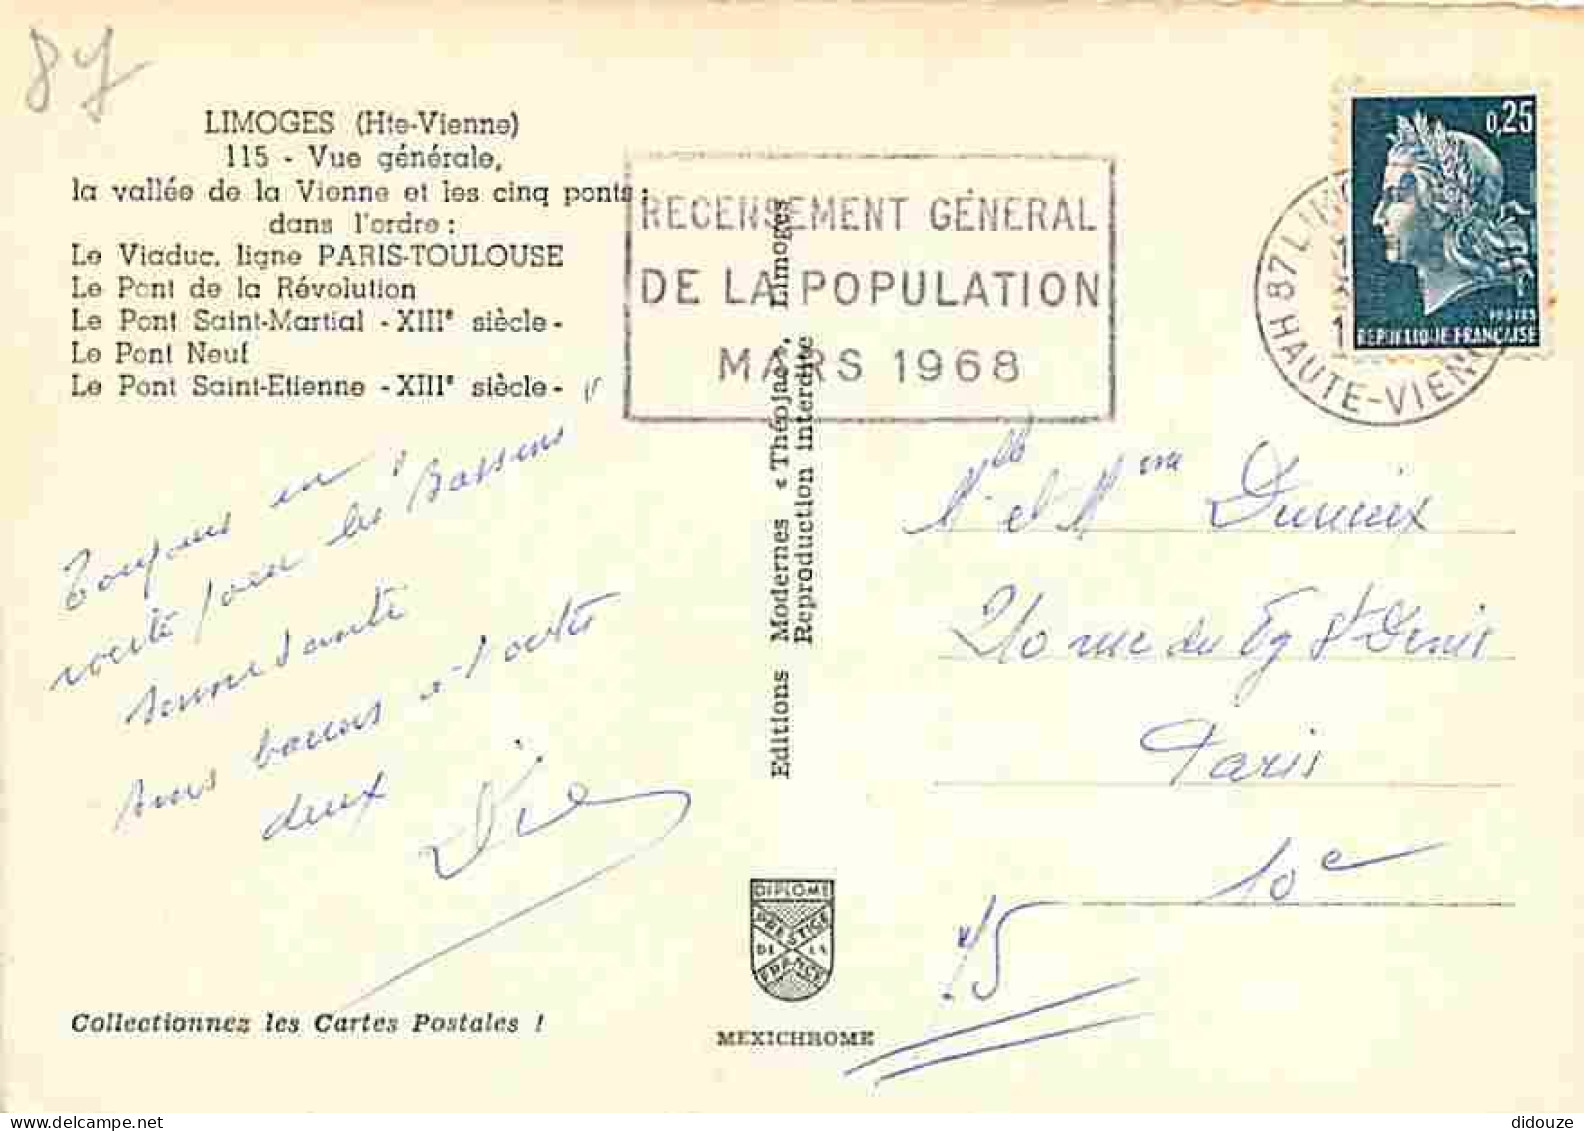 87
LIMOGES (Hte-Vienne)
115 - Vue générale,
la vallée de la Vienne et les cinq ponts :
dans l'ordre :
Le Viaduc, ligne PARIS-TOULOUSE
Le Pont de la Révolution
Le Pont Saint-Martial - XIIIe siècle -
Le Pont Neuf
Le Pont Saint-Etienne - XIIIe siècle -
RECENSEMENT GÉNÉRAL
DE LA POPULATION
MARS 1968
0,25
POSTES
REPUBLIQUE FRANÇAISE
87 LIMO
HAUTE-VIENN
Toujours en
route pour les Bassens
bonne santé
bons baisers a toutes
deux
Editions Modernes « Théojac », Limoges
Reproduction interdite
Mlle et Mme
210 rue du Fg St Denis
Paris
10e
75
DIPLOME
PRESTIGE
DE LA
FRANCE
Collectionnez les Cartes Postales !
MEXICHROME
didouze